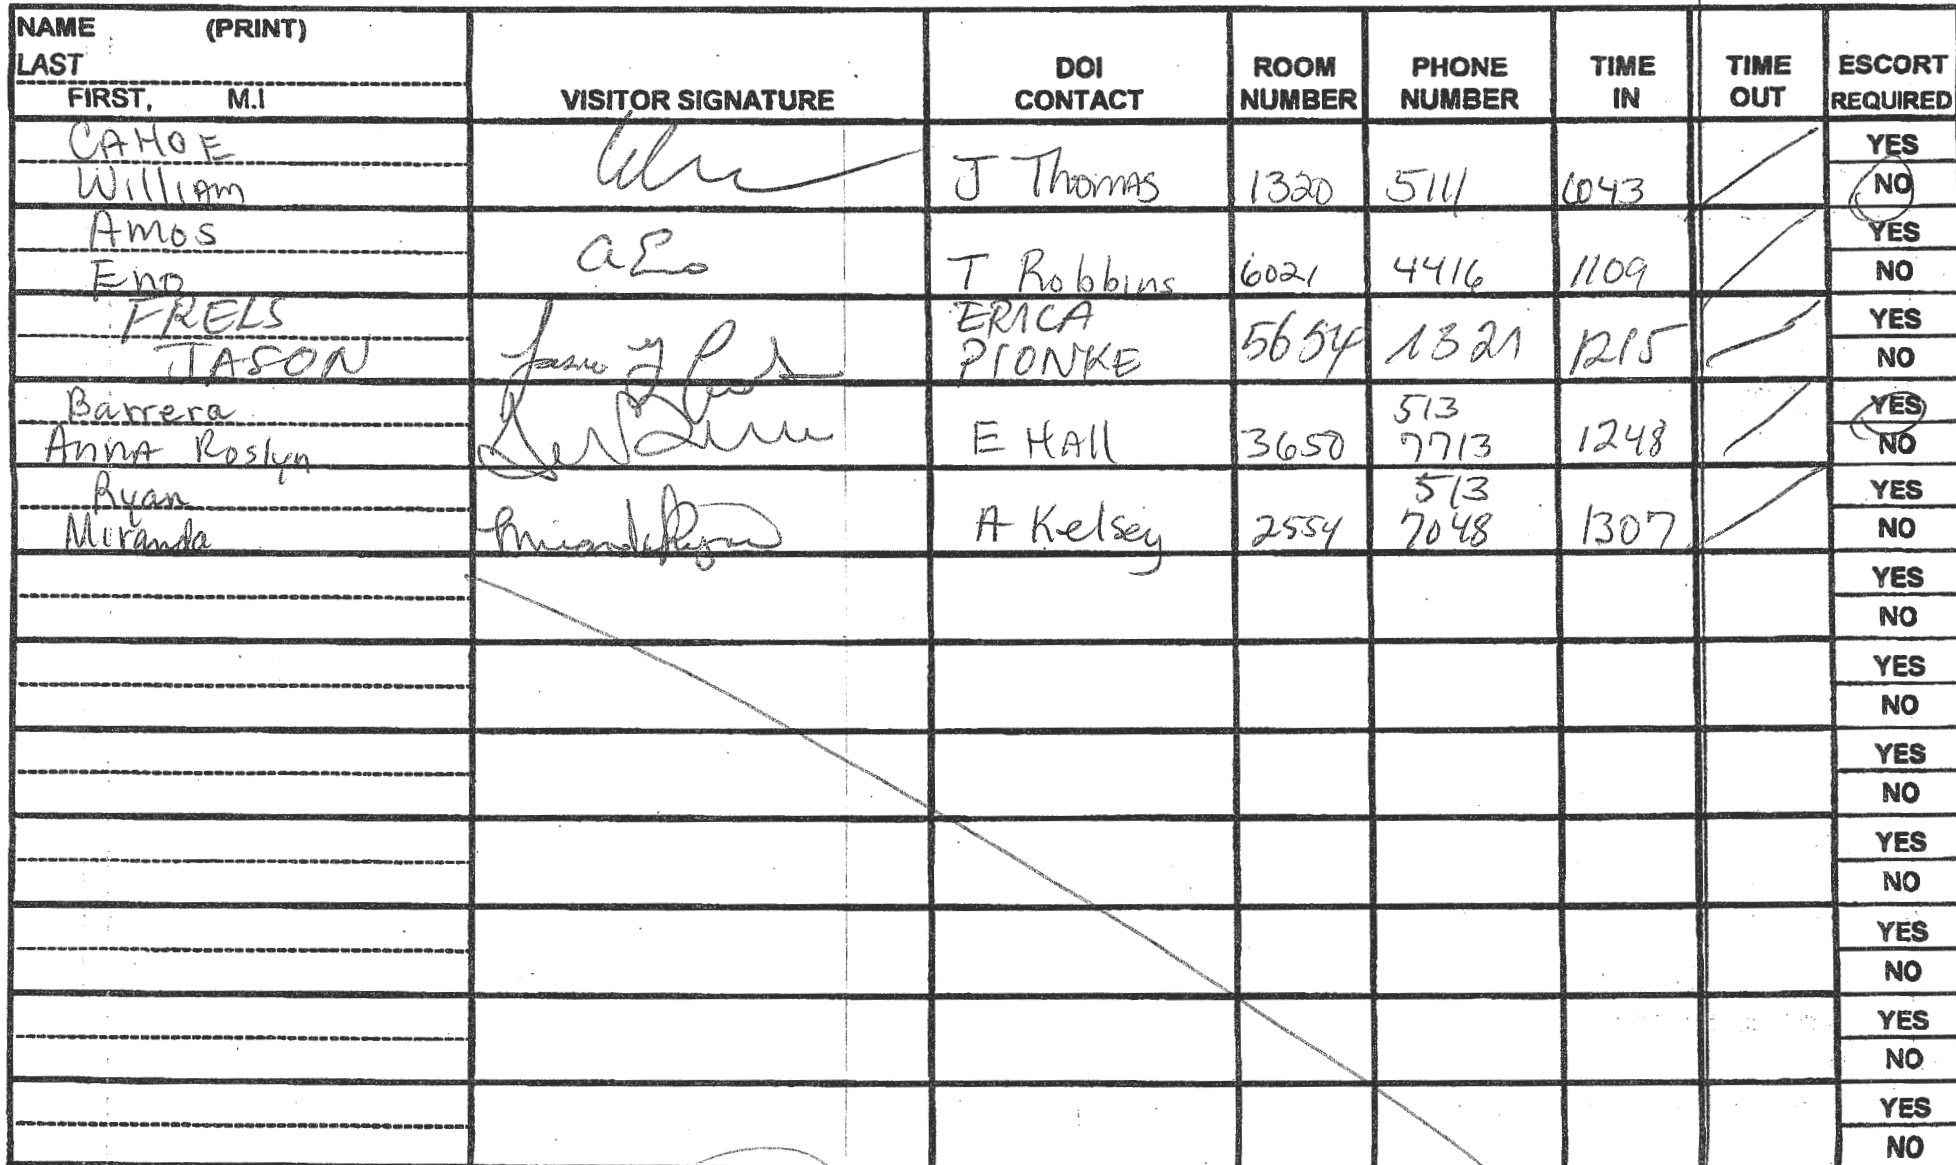 NAME (PRINT)
LAST
FIRST, M.I
VISITOR SIGNATURE
DOI CONTACT
ROOM NUMBER
PHONE NUMBER
TIME IN
TIME OUT
ESCORT REQUIRED
CAHOE
William
J Thomas 1320 5111 1043
YES
NO
Amos
Eno
T Robbins 6021 4416 1109
YES
NO
FRELS
JASON
ERICA
PIONKE
5654 1321 1215
YES
NO
Barrera
Anna Roslyn
E Hall 3650
513
7713
1248
YES
NO
Ryan
Miranda
Miranda Ryan
A Kelsey 2554
513
7048
1307
YES
NO
YES
NO
YES
NO
YES
NO
YES
NO
YES
NO
YES
NO
YES
NO